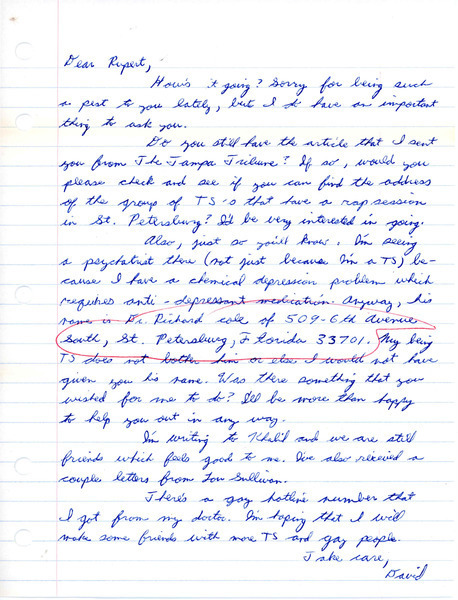 Dear Rupert,
How's it going? Sorry for being such
a pest to you lately, but I do have an important
thing to ask you.
Do you still have the article that I sent
you from The Tampa Tribune? If so, would you
please check and see if you can find the address
of the group of TS's that have a rap session
in St. Petersburg? I'd be very interested in going.
Also, just so you'll know. I'm seeing
a psychatrist there (not just because I'm a TS) be-
cause I have a chemical depression problem which
requires anti-depressant medication. Anyway, his
name is Dr. Richard Cole of 509-6th Avenue
South, St. Petersburg, Florida 33701. My being
TS does not bother him or else I would not have
given you his name. Was there something that you
wished for me to do? I'll be more than happy
to help you out in any way.
I'm writing to Khalil and we are still
friends which feels good to me. I've also received a
couple letters from Lou Sullivan.
There's a gay hotline number that
I got from my doctor. I'm hoping that I will
make some friends with more TS and gay people.
Take care,
David